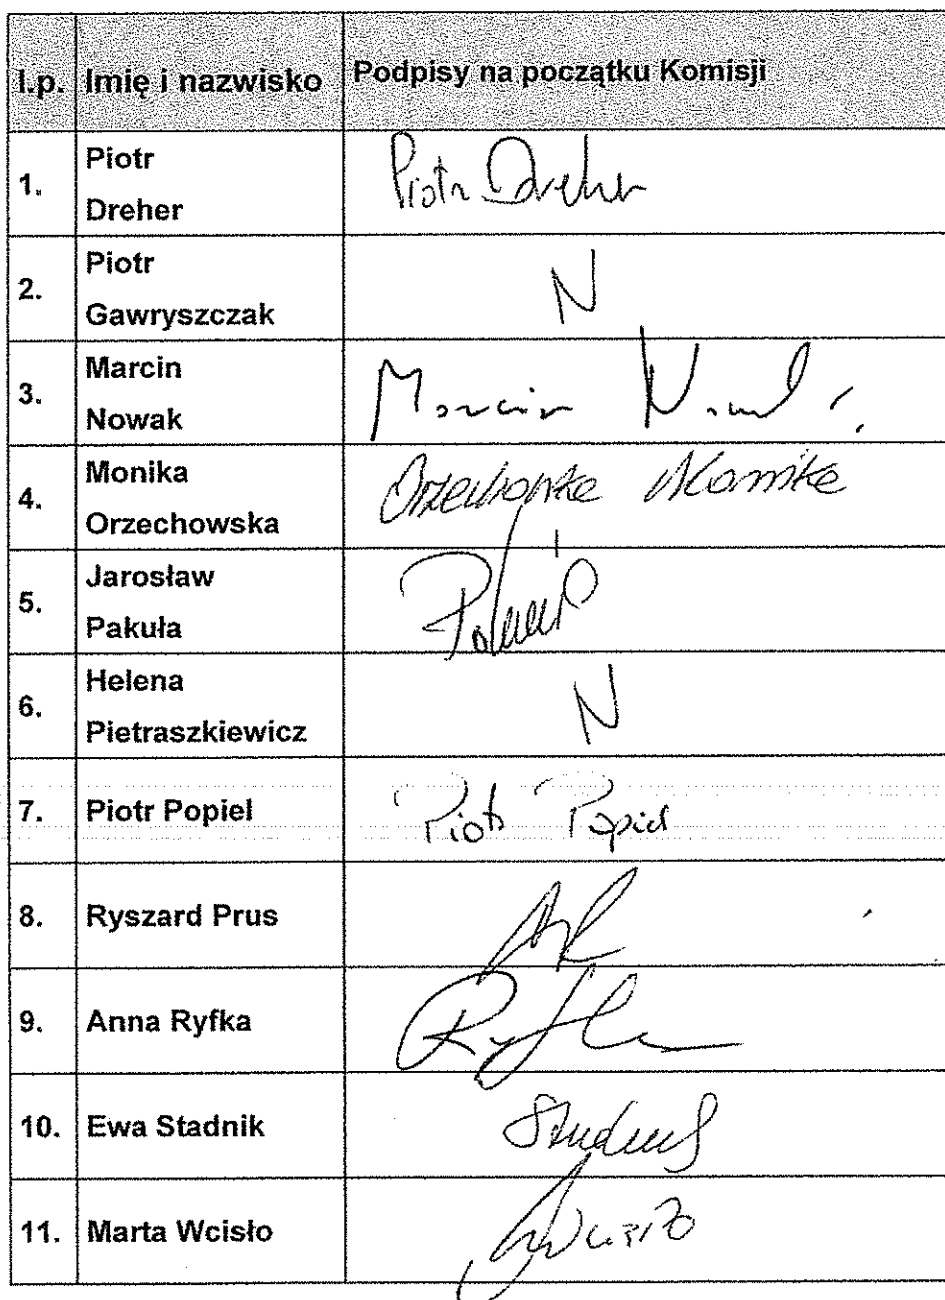 l.p. Imię i nazwisko Podpisy na początku Komisji
1. Piotr Dreher Piotr Dreher
2. Piotr Gawryszczak N
3. Marcin Nowak Marcin Nowak
4. Monika Orzechowska Orzechowska Monika
5. Jarosław Pakuła
6. Helena Pietraszkiewicz N
7. Piotr Popiel Piotr Popiel
8. Ryszard Prus
9. Anna Ryfka
10. Ewa Stadnik
11. Marta Wcisło Wcisło